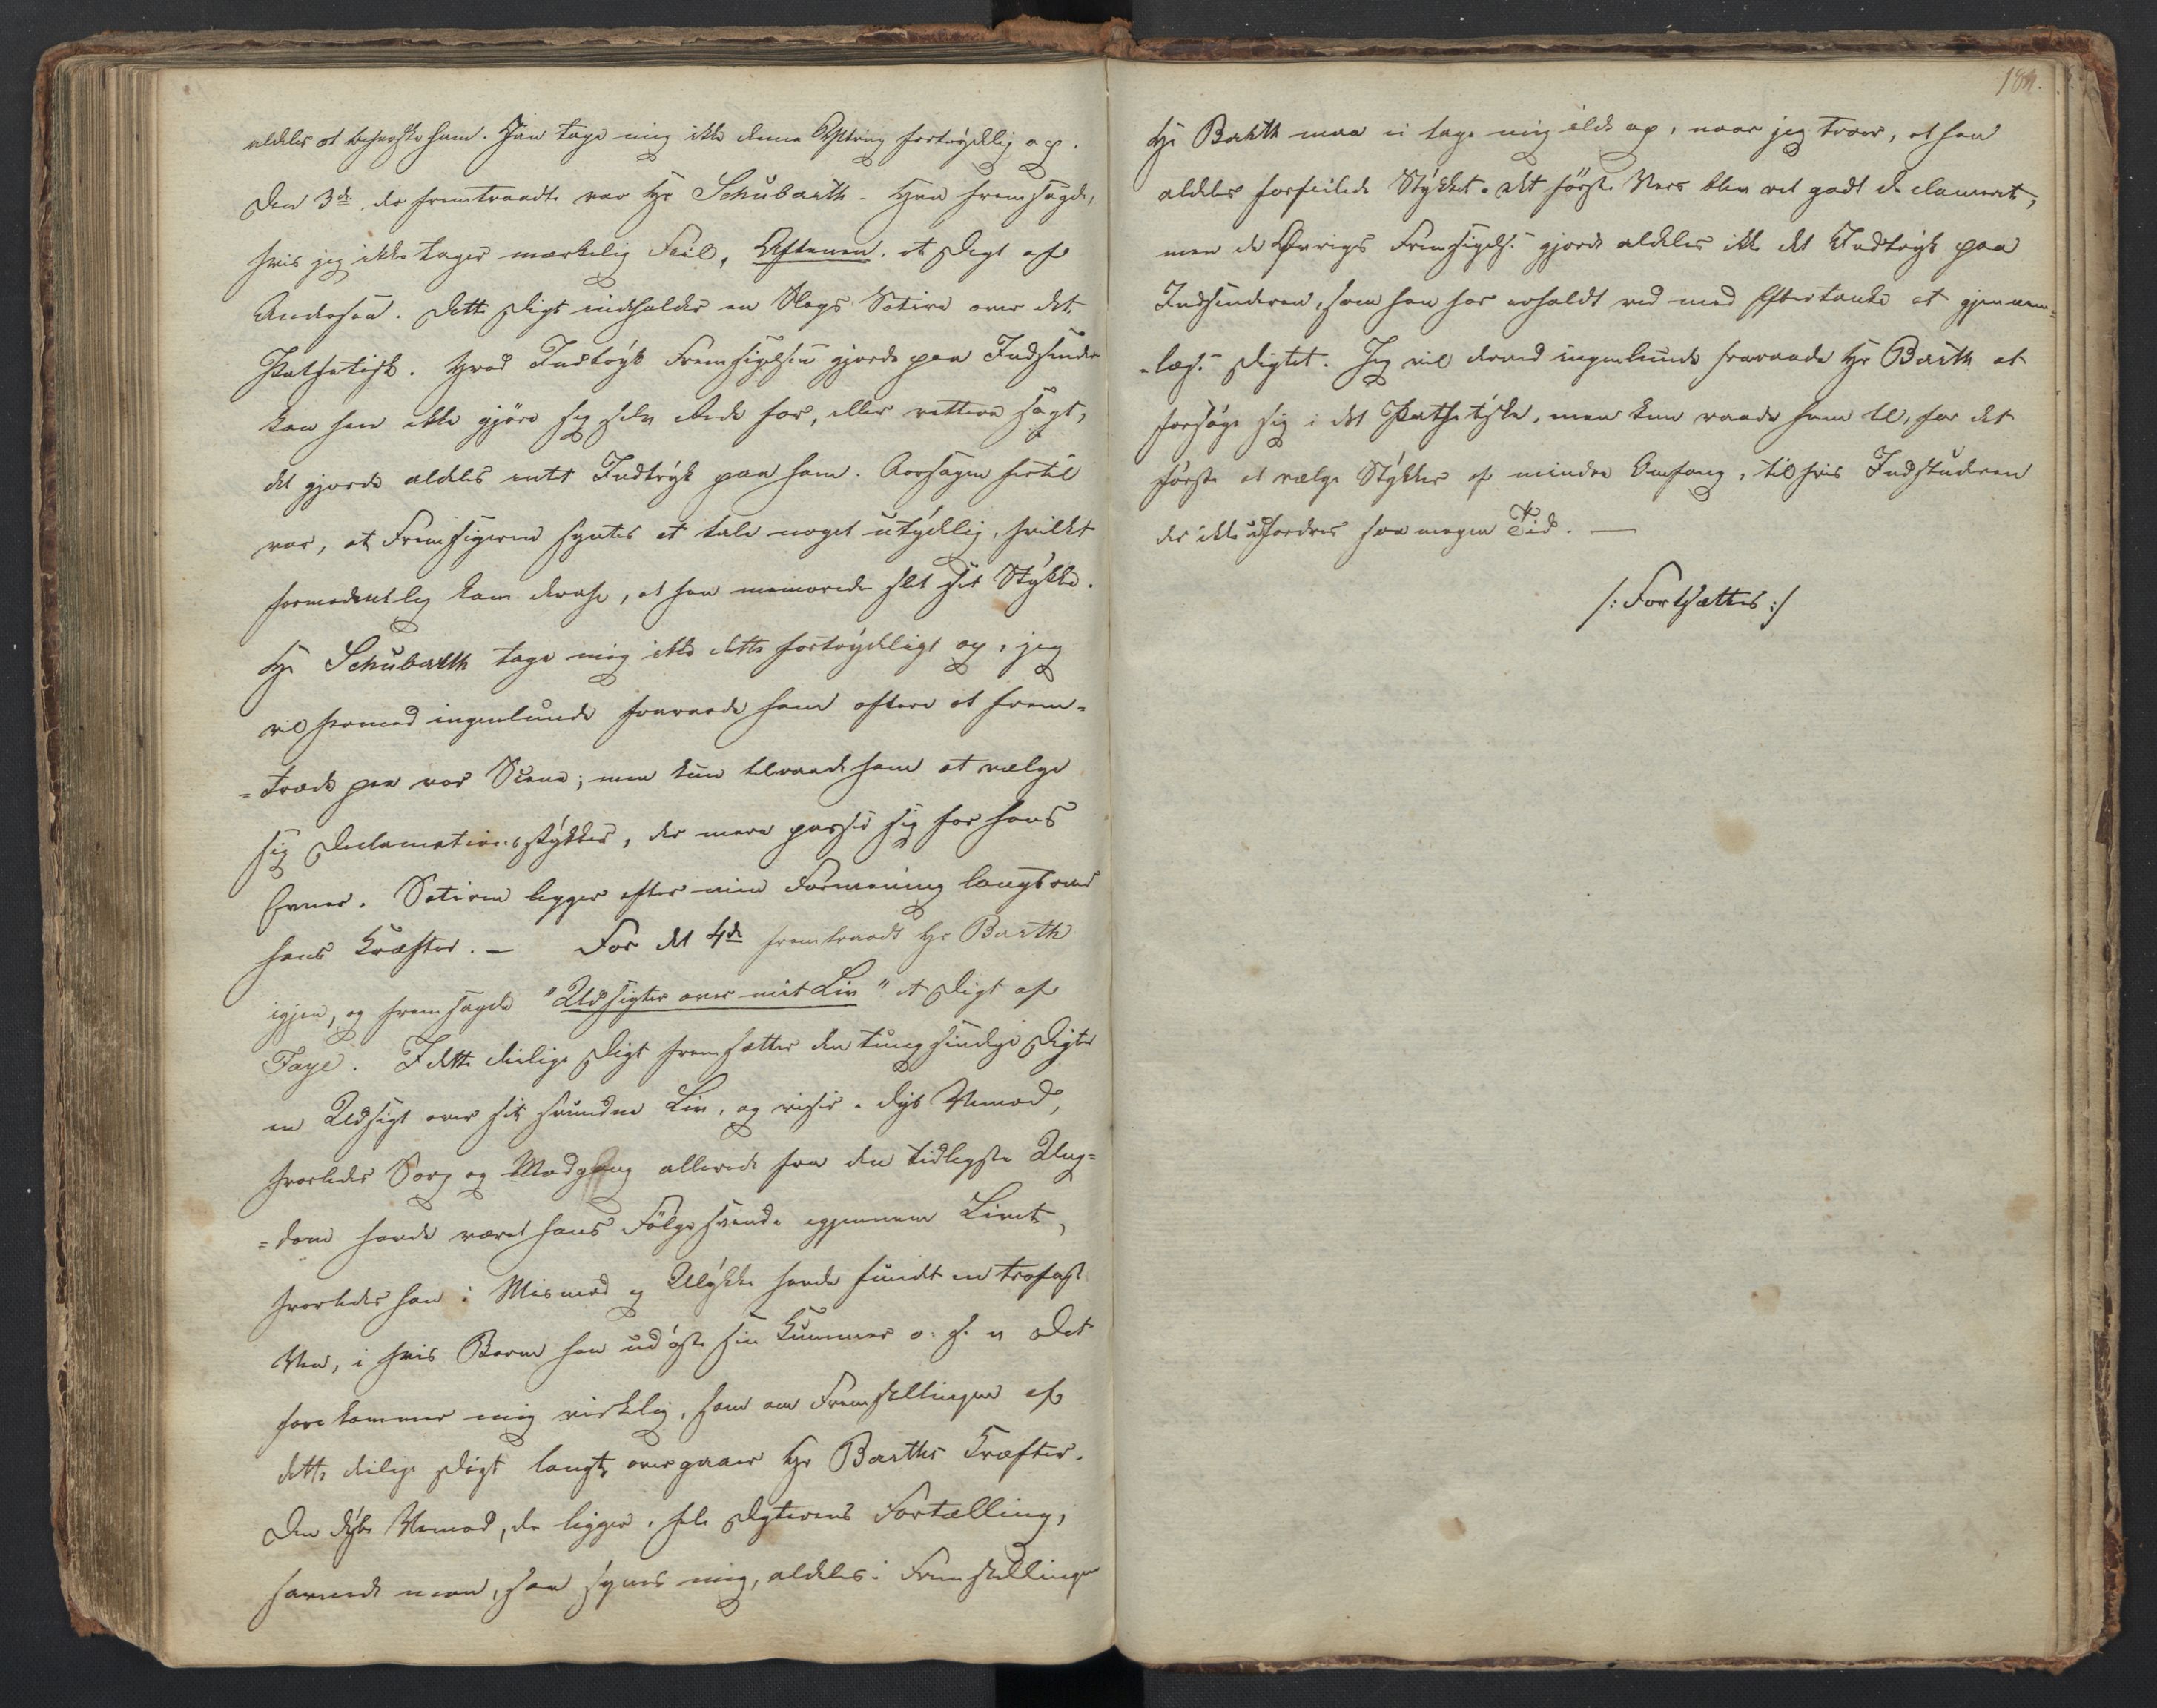 aldeles at beherske ham. Han tage mig ikke denne Yttring fortrydelig op.
Den 3de, der fremtraadte var Hr Schübarth. Han fremsagde,
hvis jeg ikke tager mærkelig Feil, Aftenen, et Digt af
Andersen. Dette Digt indholder en Slags Satire over det
Pathetiske. Hvad Indtryk Fremsigelsen gjorde paa Indsender
kan han ikke gjøre sig selv Rede for, eller rettere sagt,
det gjorde aldeles intet Indtryk paa ham. Aarsagen hertil
var, at Fremsigeren syntes at tale noget utydelig, hvilket
formodentlig kom deraf, at han memorede slet sit Stykke.
Hr Schübarth tage mig ikke dette fortrydeligt op, jeg
vil hermed ingenlunde fraraade ham oftere at frem=
=træde paa vor Scene; men kun tilraade ham at vælge
sig Declamationsstykker, der mere passer sig for hans
Evner. Satiren ligger efter min Formening langt over
hans Kræfter. – For det 4de fremtraadte Hr Barth
igjen, og fremsagde "Udsigter over mit Liv" et Digt af
Faye. I dette deilige Digt fremsætter den tungsindige Digter
en Udsigt over sit svundne Liv, og viser i dyb Vemod,
hvorledes Sorg og Modgang allerede fra den tidligste Ung=
=dom havde været hans Følgesvende igjennem Livet,
hvorledes han i Mismod og Ulykke havde fundet en trofast
Ven, i hvis Barm han udøste sin Kummer o. s. v. Det
forekommer mig virkelig, som om Fremstillingen af
dette deilige Digt langt overgaaer Hr Barths Kræfter.
Den dybe Vemod, der ligger i hele Digterens Fortælling,
savnede man, saa synes mig, aldeles i Fremstillingen
184.
Hr Barth maa ei tage mig ilde op, naar jeg troer, at han
aldeles forfeilede Stykket. Det første Vers blev ret godt declameret,
men de Øvriges Fremsigelse gjorde aldeles ikke det Indtryk paa
Indsenderen, som han har erholdt ved med Eftertanke at gjennem=
=læse Digtet. Jeg vil derved ingenlunde fraraade Hr Barth at
forsøge sig i det Pathetiske, men kun raade ham til, for det
første at vælge Stykker af mindre Omfang, til hvis Indstuderen
der ikke udfordres saa megen Tid. —
/: Fortsættes :/